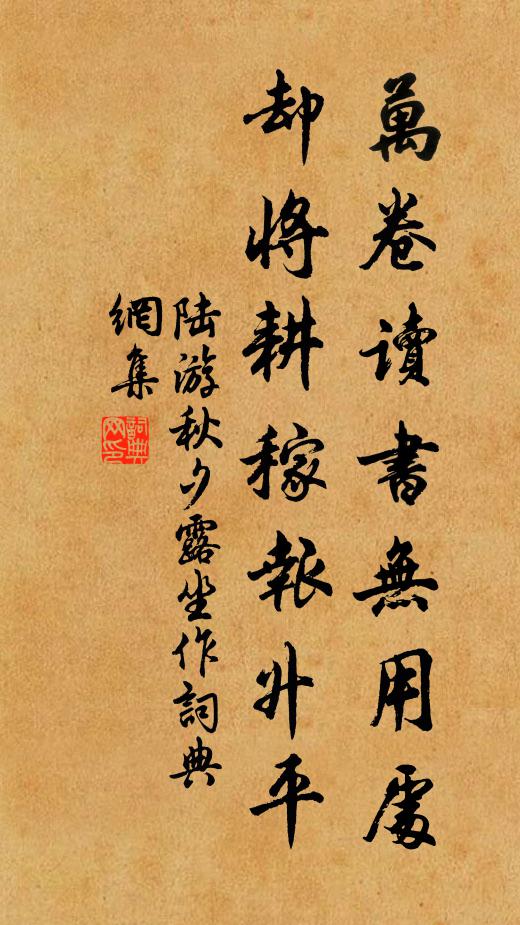 萬卷讀書無用處
却將耕稼報升平
陆游秋夕露坐作詞典
網集
詞典網印